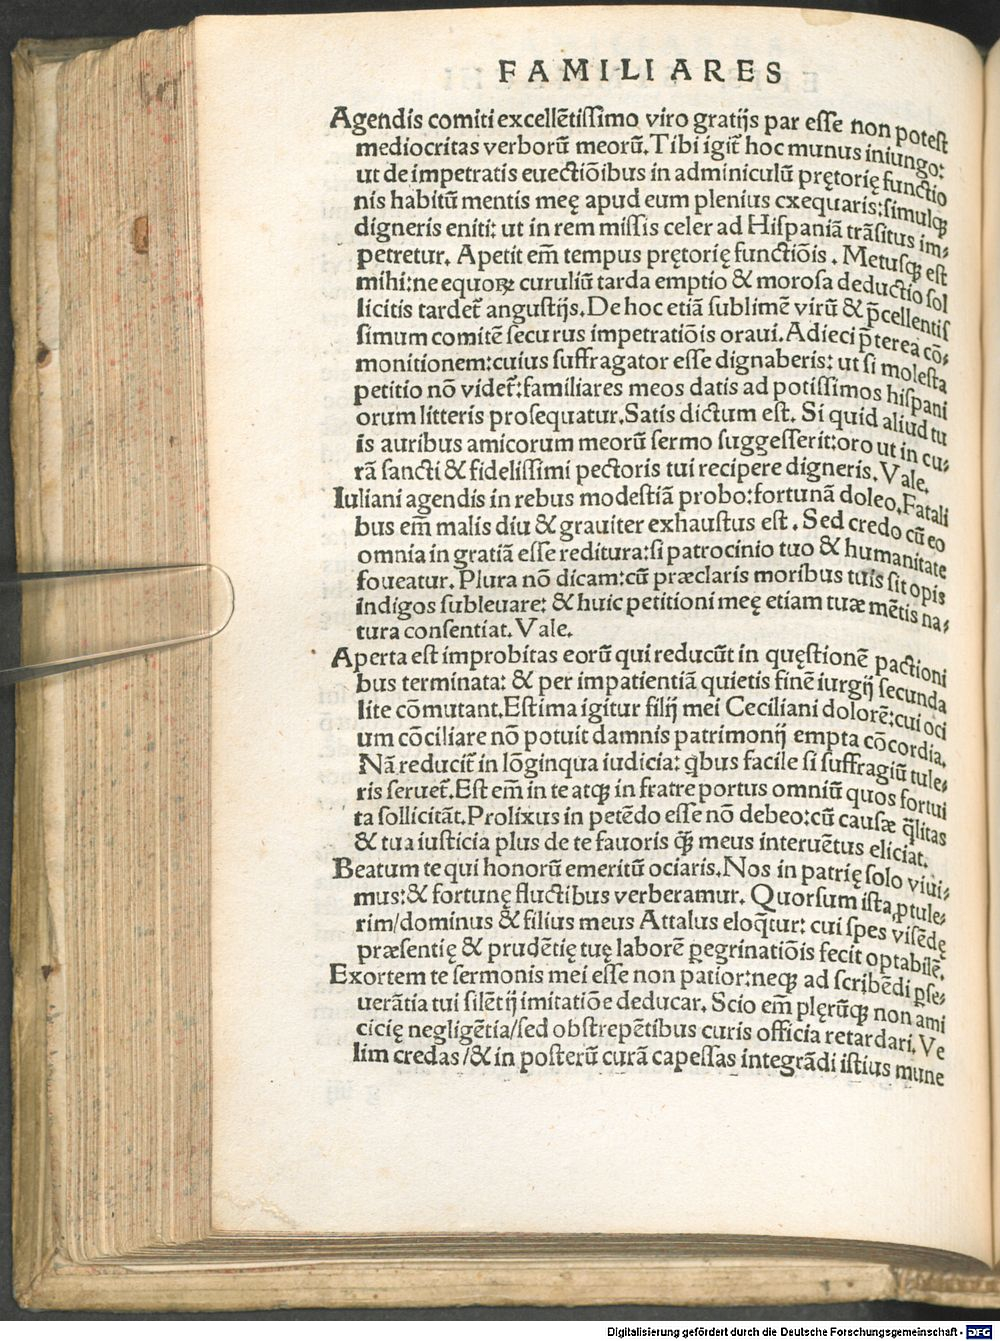 FAMILIARES
Agendis comiti excellētissimo viro gratijs par esse non potest
mediocritas verborū meorū. Tibi igit̄ hoc munus iniungo:
ut de impetratis euectiōibus in adminiculū prętorię functio
nis habitū mentis meę apud eum plenius cxequaris: simulqꝫ
digneris eniti: ut in rem missis celer ad Hispaniā trāsitus im⸗
petretur. Apetit em̄ tempus prętorię functiōis. Metusqꝫ est
mihi: ne equoꝝ curuliū tarda emptio & morosa deductio sol
licitis tardet̄ angustijs. De hoc etiā sublimē virū & p̄cellentis
simum comitē securus impetratiōis oraui. Adieci p̄terea cō⸗
monitionem: cuius suffragator esse dignaberis: ut si molesta
petitio nō videt̄: familiares meos datis ad potissimos hispani
orum litteris prosequatur. Satis dictum est. Si quid aliud tu
is auribus amicorum meorū sermo suggesserit: oro ut in cu⸗
rā sancti & fidelissimi pectoris tui recipere digneris. Vale.
Iuliani agendis in rebus modestiā probo: fortunā doleo. Fatali
bus em̄ malis diu & grauiter exhaustus est. Sed credo cū eo
omnia in gratiā esse reditura: si patrocinio tuo & humanitate
foueatur. Plura nō dicam: cū præclaris moribus tuis sit opis
indigos subleuare: & huic petitioni meę etiam tuæ mētis na⸗
tura consentiat. Vale.
Aperta est improbitas eorū qui reducūt in quęstionē pactioni
bus terminata: & per impatientiā quietis finē iurgij secunda
lite cōmutant. Estima igitur filij mei Ceciliani dolorē: cui oci
um cōciliare nō potuit damnis patrimonij empta cōcordia.
Nā reducit̄ in lōginqua iudicia: q̇bus facile si suffragiū tule⸗
ris seruet̄. Est em̄ in te atqꝫ in fratre portus omniū quos fortui
ta sollicitāt. Prolixus in petēdo esse nō debeo: cū causæ q̄litas
& tua iusticia plus de te fauoris q̄ꝫ meus interuētus eliciat.
Beatum te qui honorū emeritū ociaris. Nos in patrię solo viui⸗
mus: & fortunę fluctibus verberamur. Quorsum ista ꝓtule⸗
rim/dominus & filius meus Attalus eloq̄tur: cui spes visēdę
præsentię & prudētię tuę laborē ꝑegrinatiōis fecit optabilē.
Exortem te sermonis mei esse non patior: neqꝫ ad scribēdi ꝑse⸗
uerātia tui silētij imitatiōe deducar. Scio em̄ plęrūqꝫ non ami
cicię negligētia/sed obstrepētibus curis officia retardari. Ve
lim credas/& in posterū curā capessas integrādi istius mune
Digitalisierung gefördert durch die Deutsche Forschungsgemeinschaft - DFG